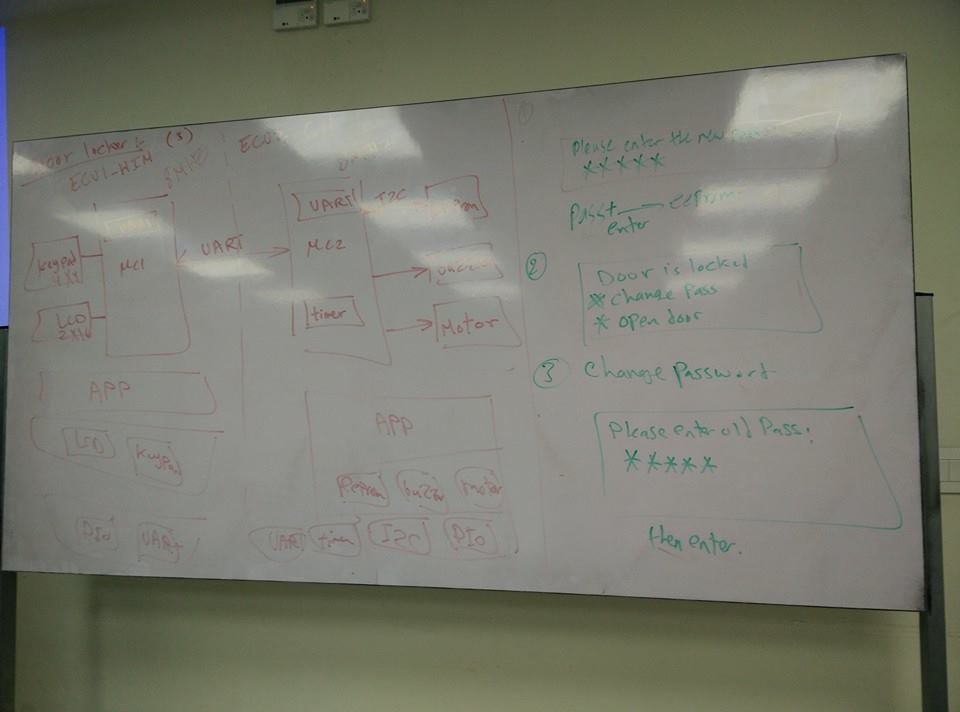 Door locker : (3)
ECU1-HIM
8MHZ
UART
Keypad
4x4
MC1
LCD
2x16
UART
ECU
UART
I2C
MC2
timer
Motor
APP
LCD
Keypad
DIO
UART
APP
motor
UART
I2C
DIO
1
Please enter the new
*****
Pass+
enter
eeprom
2
Door is locked
* change Pass
* open door
3 Change Password
Please enter old Pass:
*****
then enter.